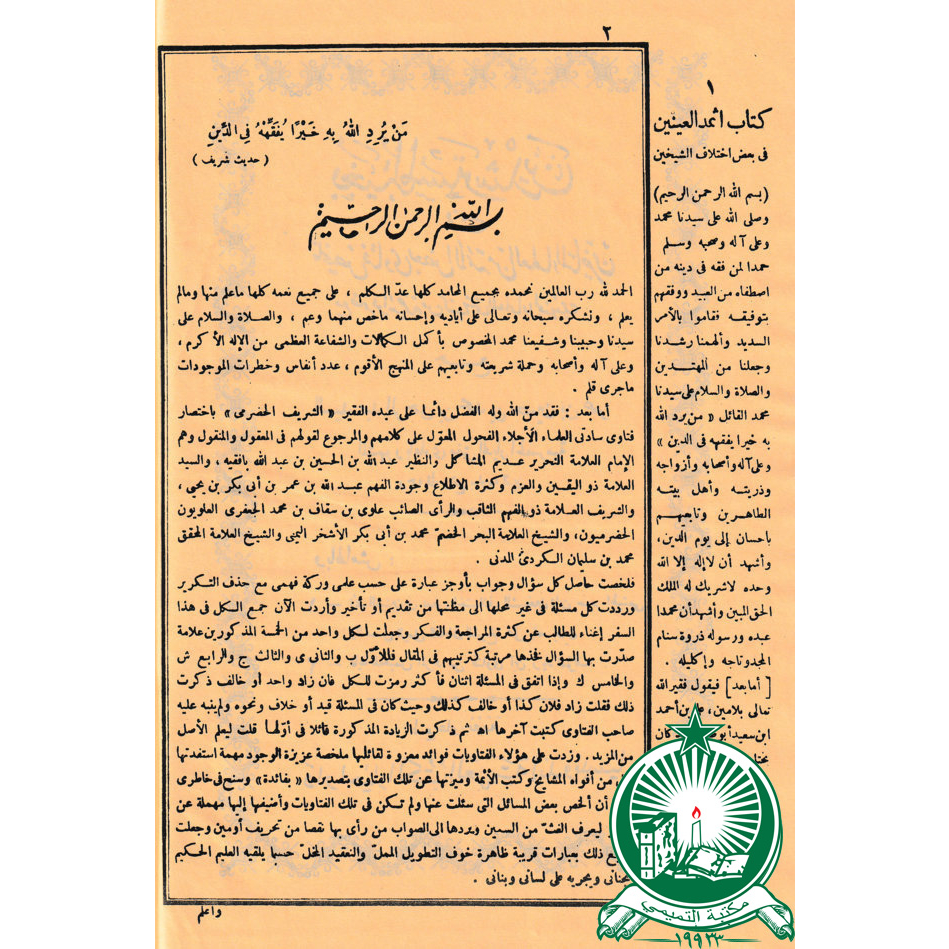 ٢
مَنْ يُرِدِ اللهُ بِهِ خَيْرًا يُفَقِّهْهُ فِى الدِّينِ
( حديث شريف )
بسم الله الرحمن الرحيم
الحمد لله رب العالمين نحمده بجميع المحامد كلها عدّ الكلم ، على جميع نعمه كلها ماعلم منها ومالم
يعلم ، ونشكره سبحانه وتعالى على أياديه وإحسانه ماخص منهما وعم ، والصلاة والسلام على
سيدنا وحبيبنا وشفيعنا محمد المخصوص بأكمل الكمالات والشفاعة العظمى من الإله الأكرم ،
وعلى آله وأصحابه وحملة شريعته وتابعيهم على المنهج الأقوم ، عدد أنفاس وخطرات الموجودات
ماجرى قلم .
أما بعد : فقد منّ الله وله الفضل دائما على عبده الفقير « الشريف الحضرمى » باختصار
فتاوى سادتى العلماء الأجلاء الفحول المعوّل على كلامهم والمرجوع لقولهم فى المعقول والمنقول وهم
الإمام العلامة النحرير عديم المشاكل والنظير عبد الله بن الحسين بن عبد الله بافقيه ، والسيد
العلامة ذو اليقين والعزم وكثرة الاطلاع وجودة الفهم عبد الله بن عمر بن أبى بكر بن يحيى ،
والشريف العلامة ذو الفهم الثاقب والرأى الصائب علوى بن سقاف بن محمد الجعفرى العلويون
الحضرميون، والشيخ العلامة البحر الخضمّ محمد بن أبى بكر الأشخر اليمنى والشيخ العلامة المحقق
محمد بن سلمان الكردىّ المدنى .
فلخصت حاصل كل سؤال وجواب بأوجز عبارة على حسب علمى وركة فهمى مع حذف التكرير
ورددت كل مسئلة فى غير محلها الى مظنتها من تقديم أو تأخير وأردت الآن جمع الكل فى هذا
السفر إغناء للطالب عن كثرة المراجعة والفكر وجعلت لكل واحد من الخمسة المذكورين علامة
صدّرت بها السؤال فخذها مرتبة كترتيبهم فى المقال فللأوّل ب والثانى ى والثالث ج والرابع ش
والخامس ك وإذا اتفق فى المسئلة اثنان فأكثر رمزت للكل فان زاد واحد أو خالف ذكرت
ذلك فقلت زاد فلان كذا أو خالف كذلك وحيث كان فى المسئلة قيد أو خلاف ونحوه ولم ينبه عليه
صاحب الفتاوى كتبت آخرها اه ثم ذكرت الزيادة المذكورة قائلا فى أوّلها قلت ليعلم الأصل
من المزيد . وزدت على هؤلاء الفتاويات فوائد معزوة لقائليها ملخصة عزيزة الوجود مهمة استفدتها
من أفواه المشايخ وكتب الأئمة وميزتها عن تلك الفتاوى بتصديرها « بفائدة » وسنح فى خاطرى
أن ألخص بعض المسائل التى سئلت عنها ولم تكن فى تلك الفتاويات وأضيفها إليها مهملة عن
ليعرف الغثّ من السمين ويردها الى الصواب من رأى بها نقصا من تحريف أومين وجعلت
ذلك بعبارات قريبة ظاهرة خوف التطويل المملّ والتعقيد المخلّ حسبما يلقيه العليم الحكيم
بجنانى ويجريه على لسانى وبنانى .
واعلم
١
كتاب اثمد العينين
فى بعض اختلاف الشيخين
(بسم الله الرحمن الرحيم)
وصلى الله على سيدنا محمد
وعلى آله وصحبه وسلم
حمدا لمن فقه فى دينه من
اصطفاه من العبيد ووفقهم
بتوفيقه فقاموا بالأمر
السديد وألهمنا رشدنا
وجعلنا من المهتدين
والصلاة والسلام على سيدنا
محمد القائل « من يرد الله
به خيرا يفقهه فى الدين »
وعلى آله وأصحابه وأزواجه
وذريته وأهل بيته
الطاهرين وتابعيهم
باحسان إلى يوم الدين،
وأشهد أن لا إله إلا الله
وحده لاشريك له الملك
الحق المبين وأشهد أن محمدا
عبده ورسوله ذروة سنام
المجد وتاجه وإكليله .
[ أما بعد ] فيقول فقير الله
تعالى بلامين، على بن أحمد
ابن سعيد
مكتبة التميمي
١٩٩٣٣